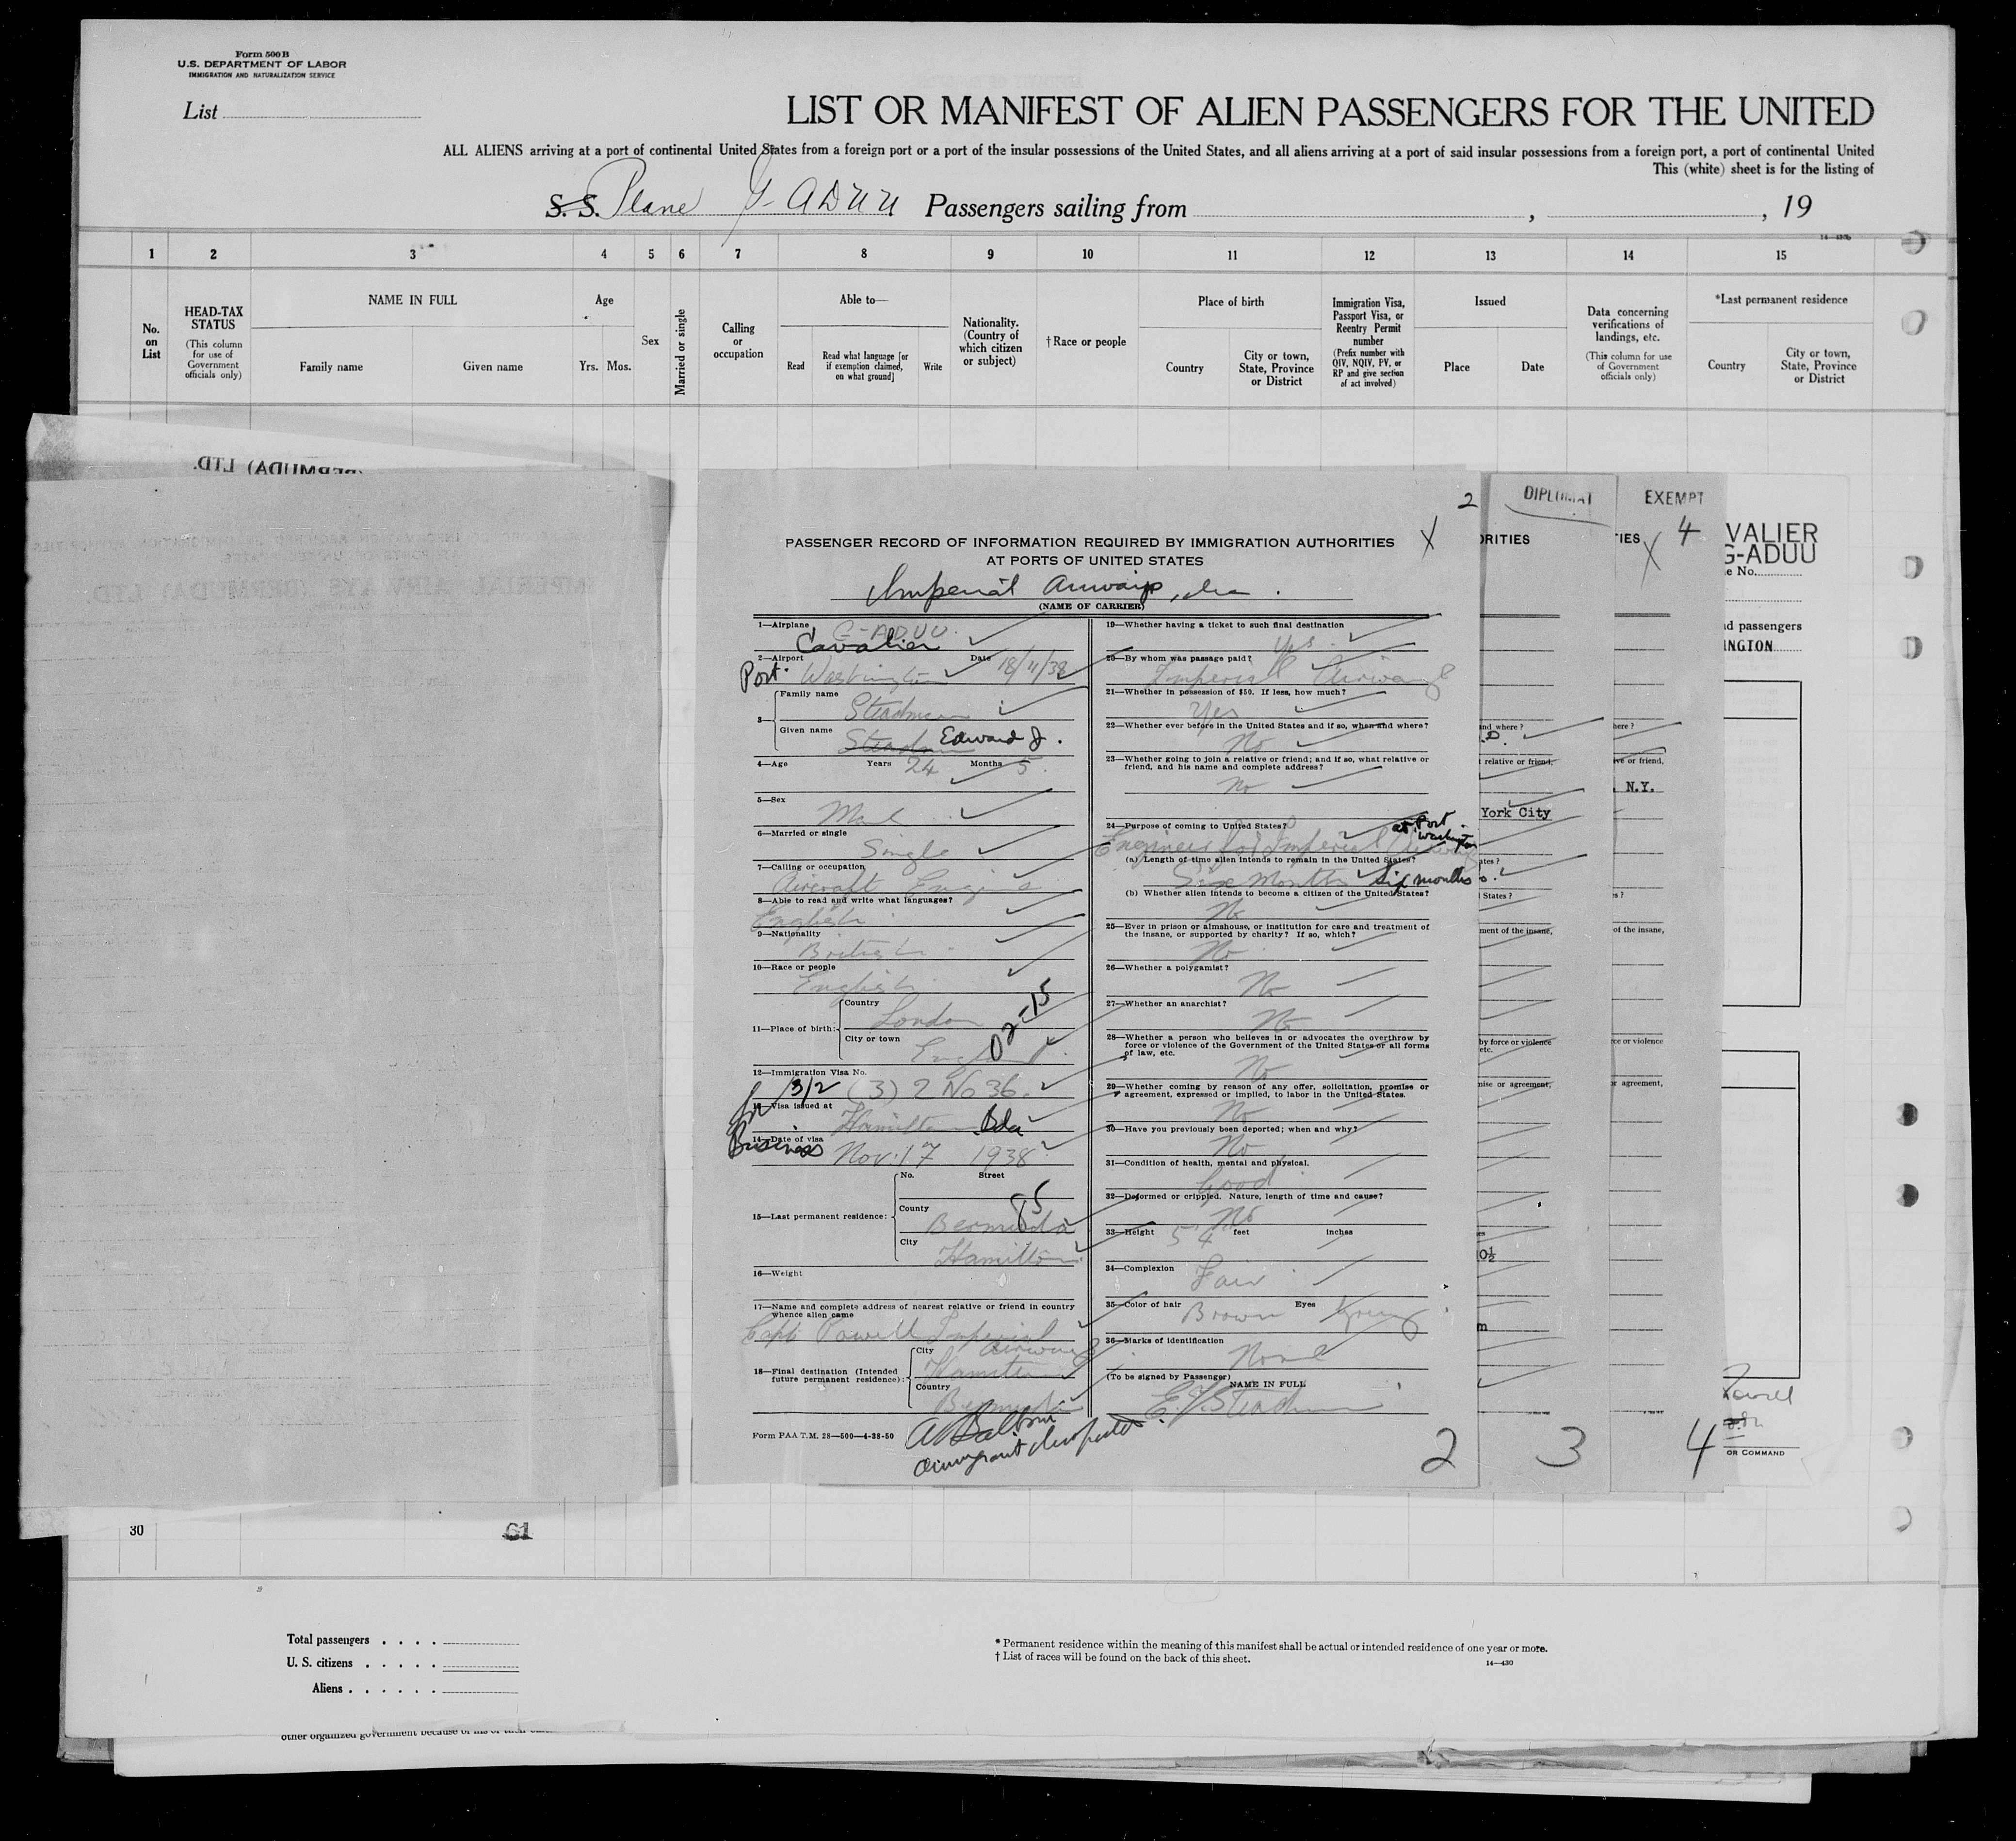 Form 500 B
U.S. DEPARTMENT OF LABOR
IMMIGRATION AND NATURALIZATION SERVICE
List
LIST OR MANIFEST OF ALIEN PASSENGERS FOR THE UNITED
ALL ALIENS arriving at a port of continental United States from a foreign port or a port of the insular possessions of the United States, and all aliens arriving at a port of said insular possessions from a foreign port, a port of continental United
This (white) sheet is for the listing of
S. S. Plane G-ADUU Passengers sailing from , , 19
1 2 3 4 5 6 7 8 9 10 11 12 13 14 15
No. on List
HEAD-TAX STATUS
(This column for use of Government officials only)
NAME IN FULL
Family name Given name
Age
Yrs. Mos.
Sex
Married or single
Calling or occupation
Able to—
Read
Read what language [or if exemption claimed, on what ground]
Write
Nationality. (Country of which citizen or subject)
†Race or people
Place of birth
Country
City or town, State, Province or District
Immigration Visa, Passport Visa, or Reentry Permit number
(Prefix number with QIV, NQIV, PV, or RP and give section of act involved)
Issued
Place Date
Data concerning verifications of landings, etc.
(This column for use of Government officials only)
*Last permanent residence
Country
City or town, State, Province or District
2
PASSENGER RECORD OF INFORMATION REQUIRED BY IMMIGRATION AUTHORITIES X
AT PORTS OF UNITED STATES
Imperial Airways,
(NAME OF CARRIER)
1—Airplane G-ADUU
Cavalier
2—Airport Date
Port Washington 18/11/38
3— Family name
Steadman
Given name
Edward J.
4—Age Years 24 Months 5
5—Sex
Male
6—Married or single
Single
7—Calling or occupation
Aircraft Engine
8—Able to read and write what languages?
English
9—Nationality
British
10—Race or people
English
11—Place of birth: Country
London
City or town
England
12—Immigration Visa No.
3/2 (3) 2 No 36.
13—Visa issued at
Hamilton Bda
14—Date of visa
Business Nov. 17 1938
No. Street
15—Last permanent residence: County
Bermuda 85
City
Hamilton
16—Weight
17—Name and complete address of nearest relative or friend in country whence alien came
Capt Powell Imperial Airways
18—Final destination (Intended future permanent residence): City
Hamilton
Country
Bermuda
Form PAA T.M. 28—500—4-38-50
19—Whether having a ticket to such final destination
Yes
20—By whom was passage paid?
Imperial Airways
21—Whether in possession of $50. If less, how much?
Yes
22—Whether ever before in the United States and if so, when and where?
No
23—Whether going to join a relative or friend; and if so, what relative or friend, and his name and complete address?
No
24—Purpose of coming to United States? at Port Washington
Engineer for Imperial Airways
(a) Length of time alien intends to remain in the United States?
Six Months Six months
(b) Whether alien intends to become a citizen of the United States?
No
25—Ever in prison or almshouse, or institution for care and treatment of the insane, or supported by charity? If so, which?
No
26—Whether a polygamist?
No
27—Whether an anarchist?
No
28—Whether a person who believes in or advocates the overthrow by force or violence of the Government of the United States or all forms of law, etc.
No
29—Whether coming by reason of any offer, solicitation, promise or agreement, expressed or implied, to labor in the United States.
No
30—Have you previously been deported; when and why?
No
31—Condition of health, mental and physical.
Good
32—Deformed or crippled. Nature, length of time and cause?
No
33—Height 5 4 feet inches
34—Complexion
Fair
35—Color of hair Brown Eyes
36—Marks of identification
None
(To be signed by Passenger) NAME IN FULL
E. J. Steadman
Immigrant Inspector
2
DIPLOMAT
York City
3
EXEMPT
X 4
N.Y.
4
VALIER
G-ADUU
d passengers
INGTON
OR COMMAND
30 61
Total passengers
U. S. citizens
Aliens
* Permanent residence within the meaning of this manifest shall be actual or intended residence of one year or more.
† List of races will be found on the back of this sheet.
14—430